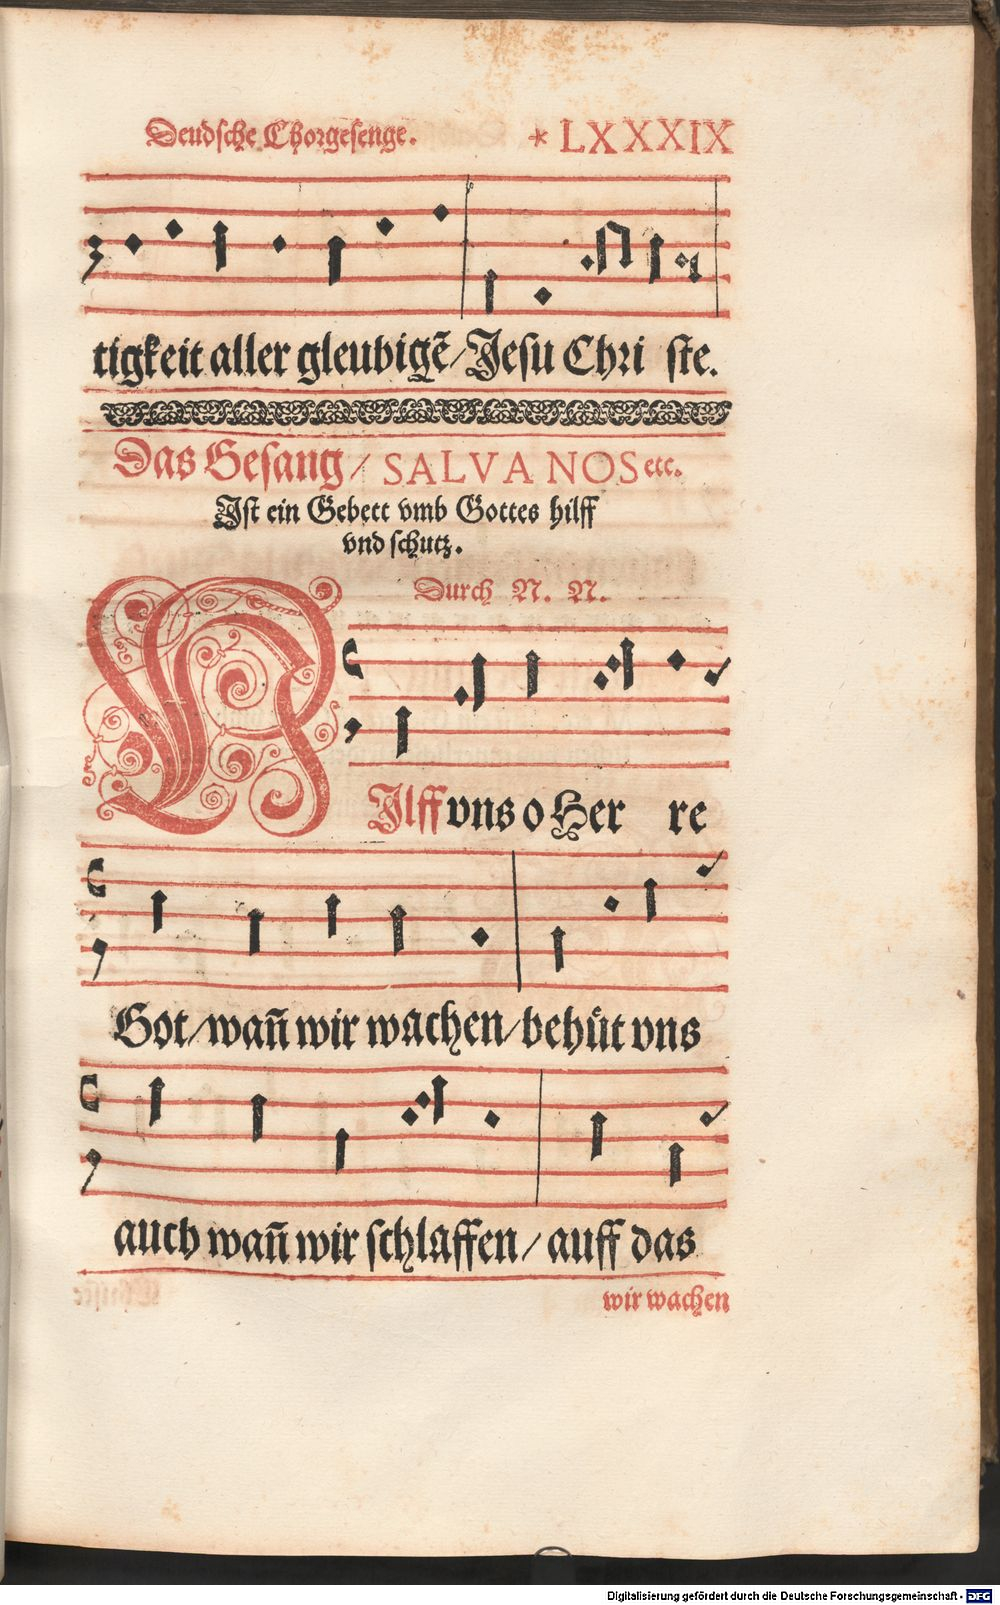 Deudsche Chorgesenge. * LXXXIX
tigkeit aller gleubigẽ/ Jesu Chri ste.
Das Gesang/ SALVA NOS etc.
Ist ein Gebett vmb Gottes hilff
vnd schutz.
Durch N. N.
HIlff vns o Her re
Got/ wañ wir wachen/ behüt vns
auch wañ wir schlaffen/ auff das
wir wachen
Digitalisierung gefördert durch die Deutsche Forschungsgemeinschaft - DFG